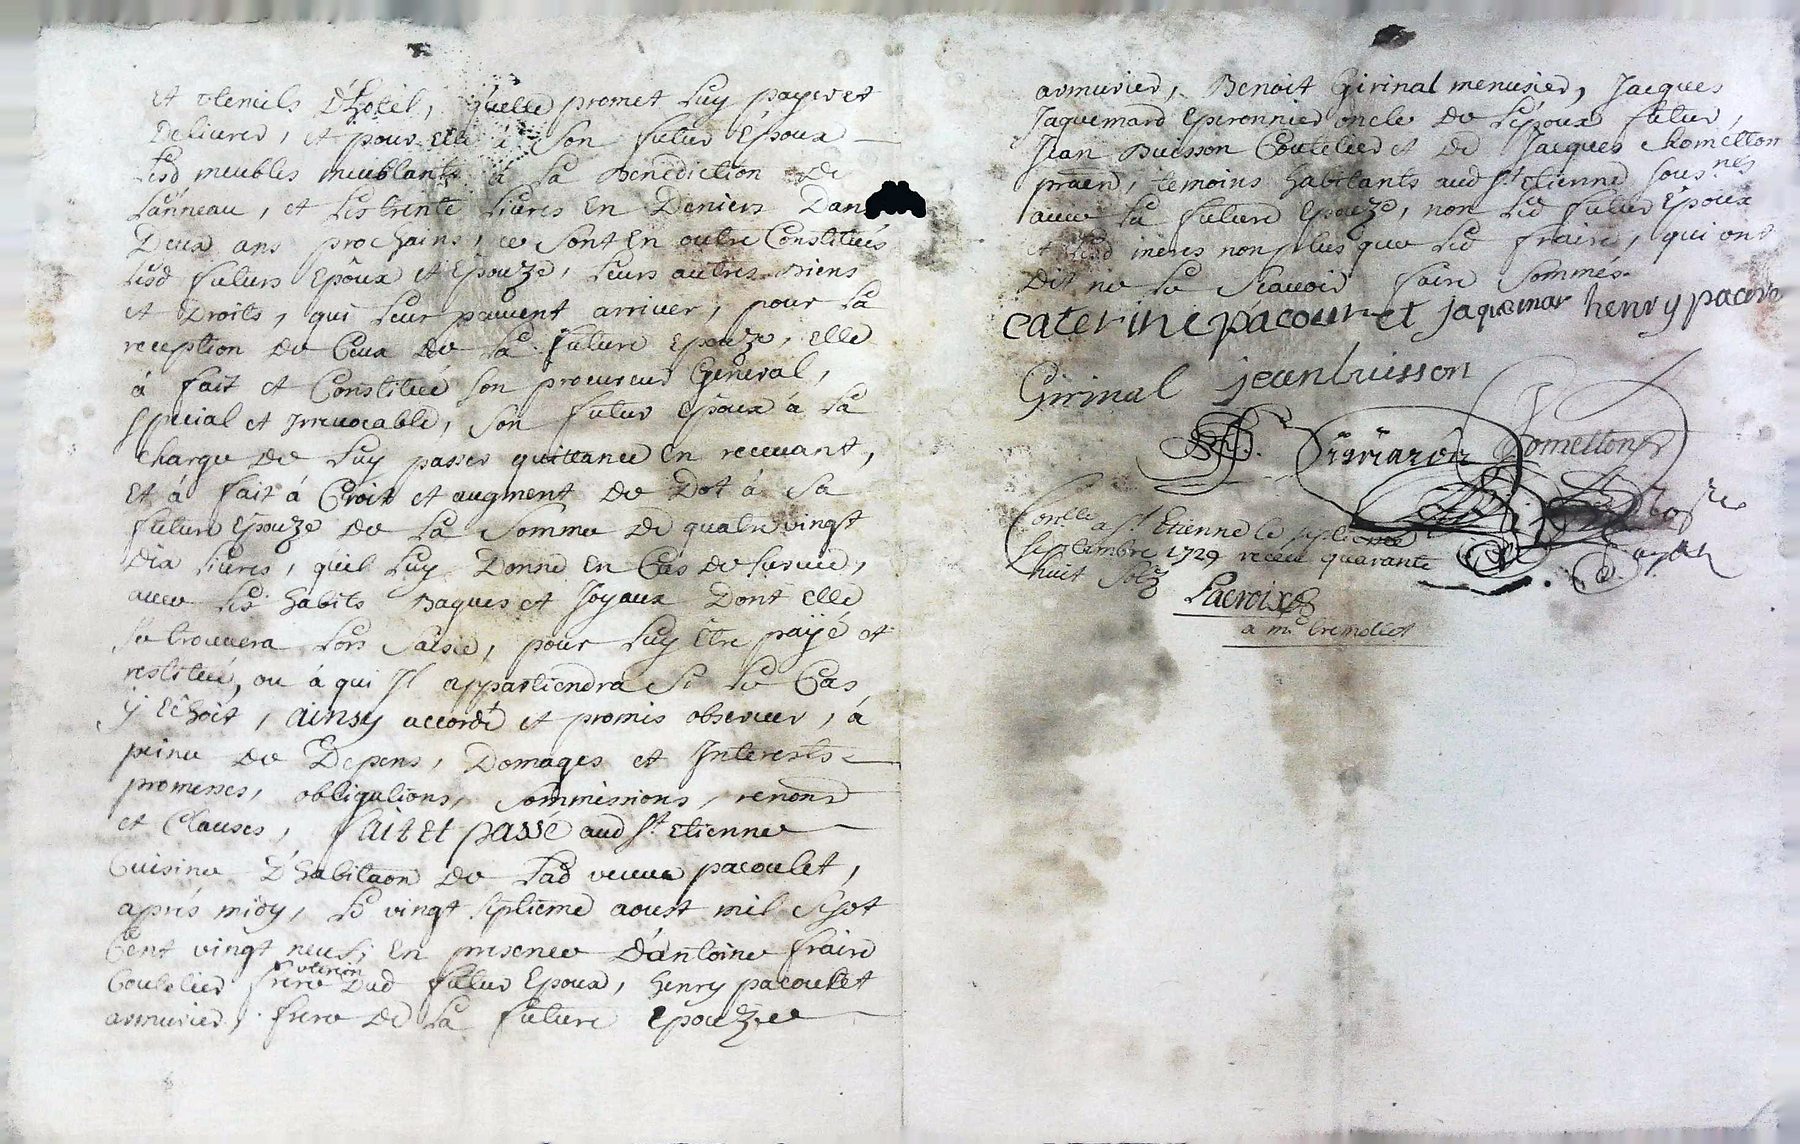 et utencils D'hotel, quelle promet Luy payer et
Deliurer, et pour elle à Son futur Epoux
Lesd meubles meublants à La Benediction de
L'anneau, et Les trente Liures En Deniers Dans
Deux ans prochains, ce Sont En outre Constitués
Lesd futurs Epoux et Epouze, Leurs autres Biens
et Droits, qui Leur peuuent arriuer, pour La
reception de Ceux de La future Epouze, elle
à fait et Constitué Son procureur General,
special et Irreuocable, Son futur Epoux à La
charge de Luy passer quittance En receuant,
Et à fait à Croit et augment de Dot à Sa
future Epouze de La Somme de quatre vingt
Dix Liures, qu'il Luy Donne En Cas de Suruie,
auec Les habits Bagues et Joyaux Dont elle
Se trouuera Lors Saisie, pour Luy Etre payé et
restitué, ou à qui Il appartiendra Si Le Cas
y Echoit, ainsy accordé et promis obseruer, à
peine de Depens, Domages et Interests
promesses, obligations, Sommissions, renond
et Clauses, fait et passé aud St Etienne
Cuisine D'habitaon de Lad veuue pacoulet,
après midy, Le vingt Septieme aoust mil Sept
Cent vingt neuf, En presence D'antoine fraire
Coutelier frere uterin Dud futur Epoux, henry pacoulet
armurier, frere de La future Epouze
armurier, Benoit Girinal menusier, Jacques
Jaquemard Eperonnier oncle de L'epoux futur,
Jean Buisson Coutelier et de Jacques chometton
praen, temoins habitants aud St Etienne sousnes
auec La future Epouze, non Led futur Epoux
et Lesd meres non plus que Led fraire, qui ont
Dit ne Le Scauoir faire Sommés.
caterine pacouret jaquemar henry pacore
Girinal jean buisson
Chometton
Conlle a St Etienne le septieme
septembre 1729 receu quarante
huit Solz
Lacroix
a me tremollet